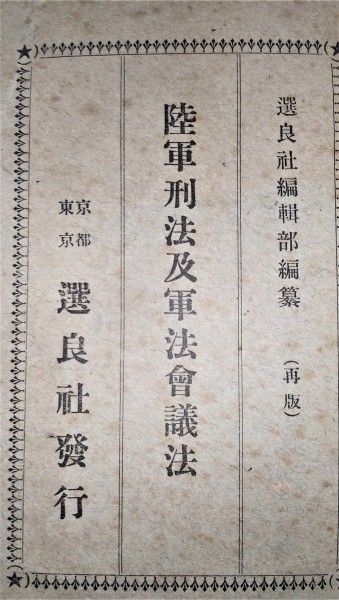 選良社編輯部編纂 (再版)
陸軍刑法及軍法會議法
京都
東京
選良社發行